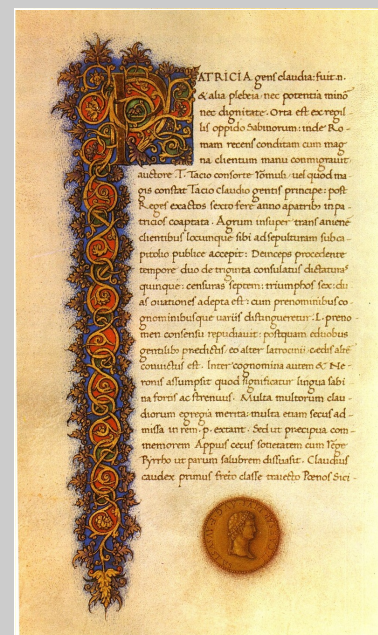 PATRICIA gens claudia: fuit.n.
& alia plebeia: nec potentia minor̄
nec dignitate. Orta est ex regil-
lis oppido Sabinorum: inde Ro-
mam recens conditam cum mag
na clientum manu conmigrauit
auctore .T. Tacio consorte Romuli: uel quod ma
gis constat Tacio Claudio gentis principe: post
Reges exactos sexto fere anno a patribus in pa-
tricios coaptata. Agrum insuper trans aniene
clientibus locumque sibi ad sepulturam sub ca-
pitolio publice accepit: Deinceps procedente
tempore duo de triginta consulatus dictaturas
quinque: censuras septem: triumphos sex: du
as ouationes adepta est: cum prenominibus co-
gnominibusque uariis distingueretur. L. preno
men consensu repudiauit: postquam e duobus
gentilibus preditis eo alter latrocinii: cedis alter
conuictus est. Inter cognomina autem & Ne-
ronis assumpsit quod significatur lingua sabi
na fortis ac strenuus. Multa multorum clau-
diorum egregia merita: multa etiam secus ad-
missa in rem .p. extant. Sed ut precipua com-
memorem Appius cecus societatem cum rege
Pyrrho ut parum salubrem dissuasit. Claudius
caudex primus freto classe traiecto Poenos Sici-